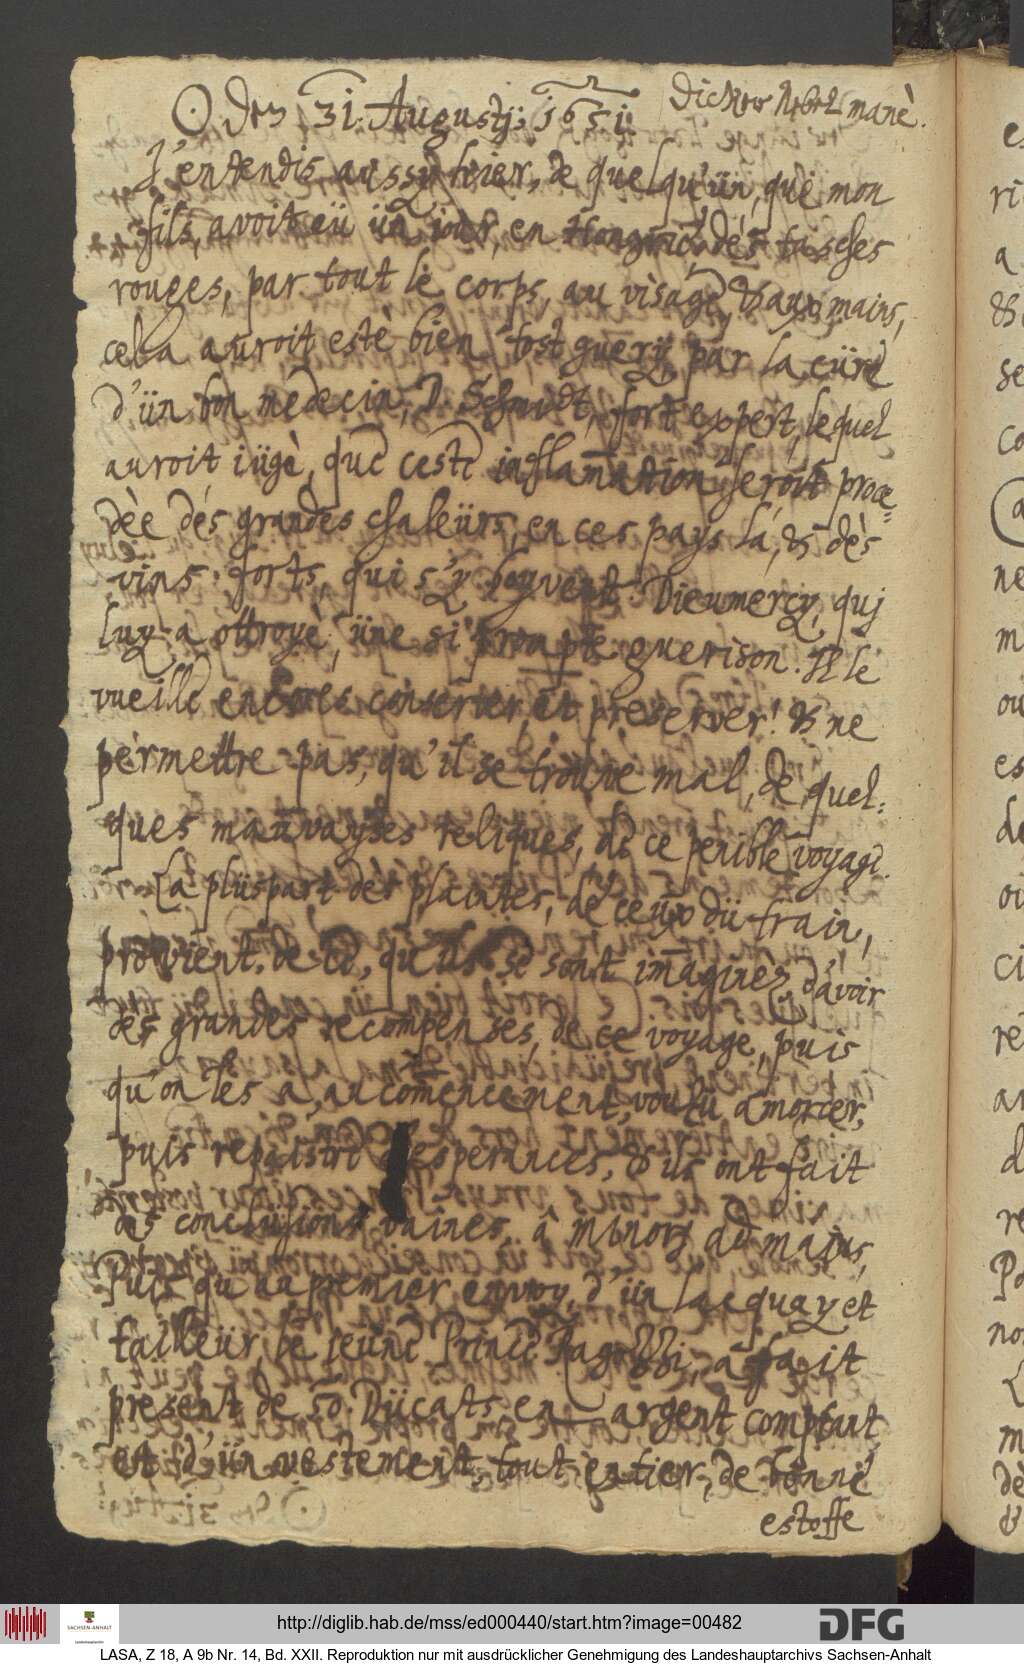 ☉ den 31. Augustij: 1651 Dicker Nebel manè.
J'entendis aussy hier, de quelqu'ün, que mon
fils, avoit eü ün jour, en Hongrie, des tasches
rouges, par tout le corps, au visage, & aux mains,
cela auroit estè bien tost guery, par la cüre
d'ün bon medecin, D. Schmidt, fort expert, lequel
auroit jügè, que ceste inflam̄ation seroit proce¬
dèe dés grandes chaleürs, en ces pays là, & dès
vins forts, qui s'y beuvent. Dieumercy, quj
luy a ottroyè, üne si prompte guerison. Il le
vueille encores conserver, et preserver! & ne
permettre pas, qu'il se trouve mal, de quel¬
ques mauvayses reliques, de ce penible voyage.
La plüspart dès plaintes, de ceux dü train,
provient, de ce, qu'ils se sont imaginèz, d'avoir
des grandes recompenses, de ce voyage, puis
qu'on les a, au com̄encement, voulu amorcer,
puis repaistre d'esperances, & ils ont fait
des conclüsions vaines, â minorj ad majus,
Puis qu'au premier envoy, d'ün lacquay et
tailleür, le jeüne Prince Ragozzi, a fait
present de 50 Dücats en argent comptant
et d'ün vestement, tout entier, de bonne
estoffe
http://diglib.hab.de/mss/ed000440/start.htm?image=00482
SACHSEN-ANHALT
DFG
LASA, Z 18, A 9b Nr. 14, Bd. XXII. Reproduktion nur mit ausdrücklicher Genehmigung des Landeshauptarchivs Sachsen-Anhalt